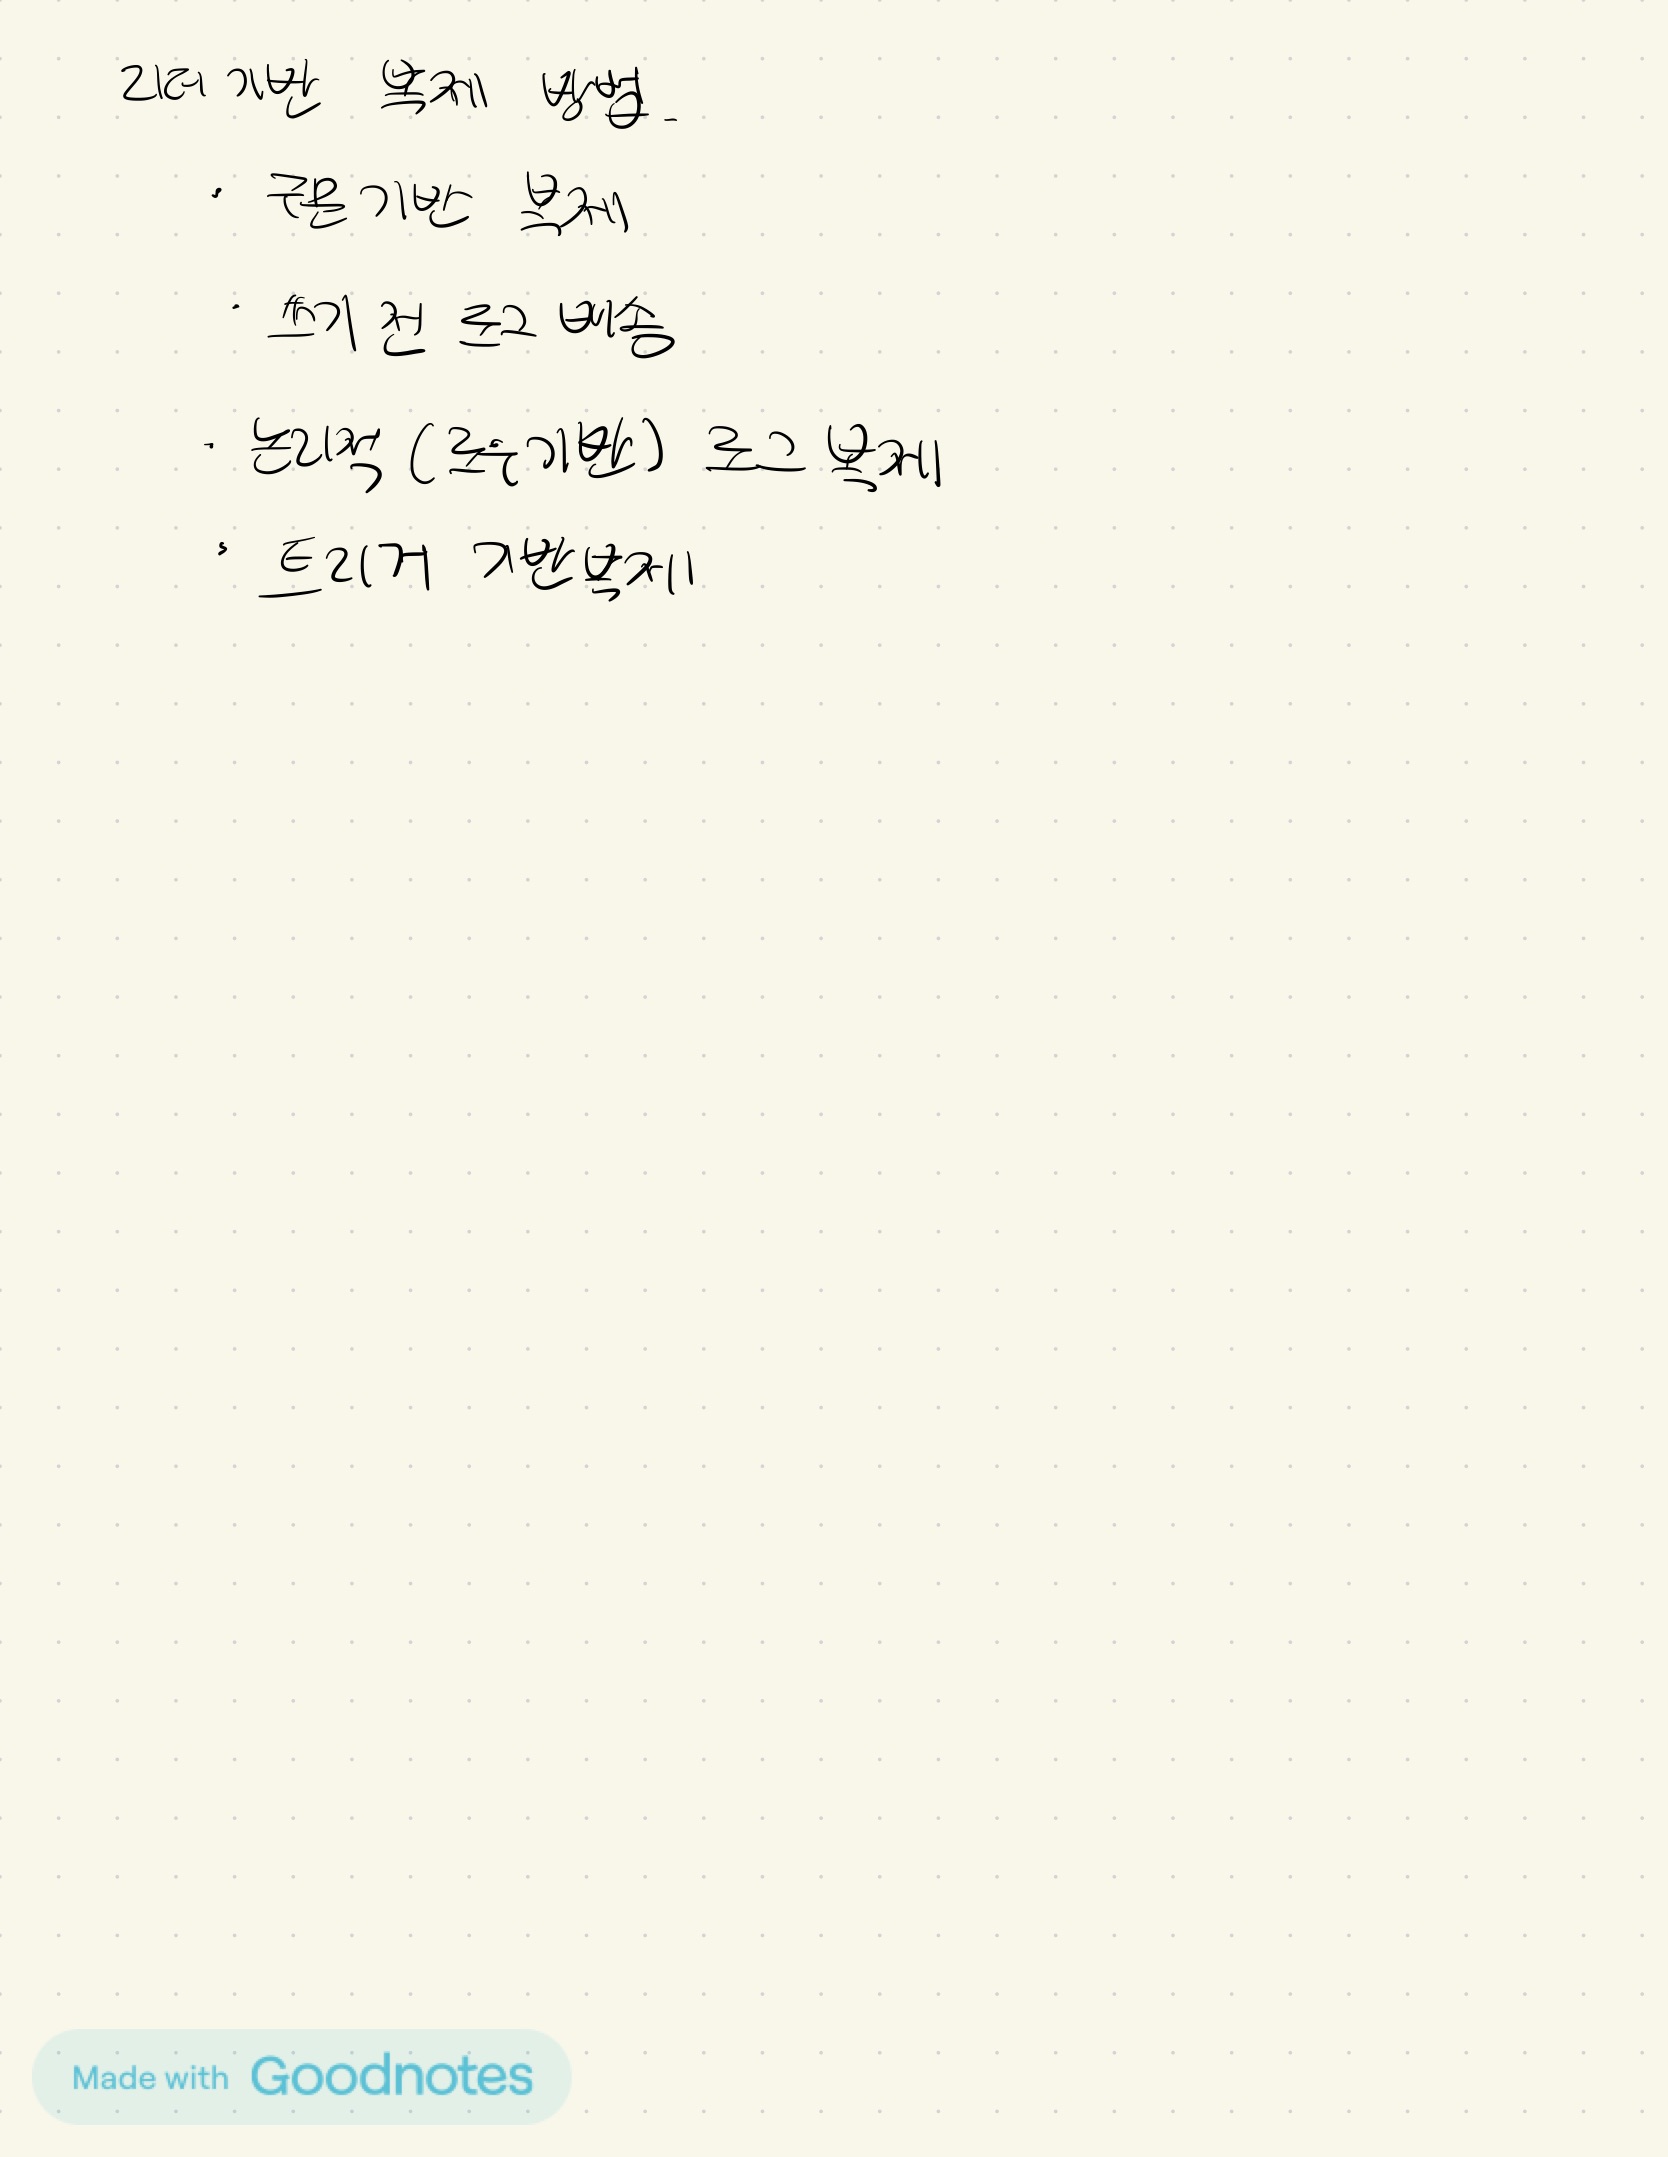 리더 기반 복제 방법.
· 구문 기반 복제
· 쓰기 전 로그 배송
· 논리적 (로우기반) 로그 복제
· 트리거 기반복제
Made with Goodnotes